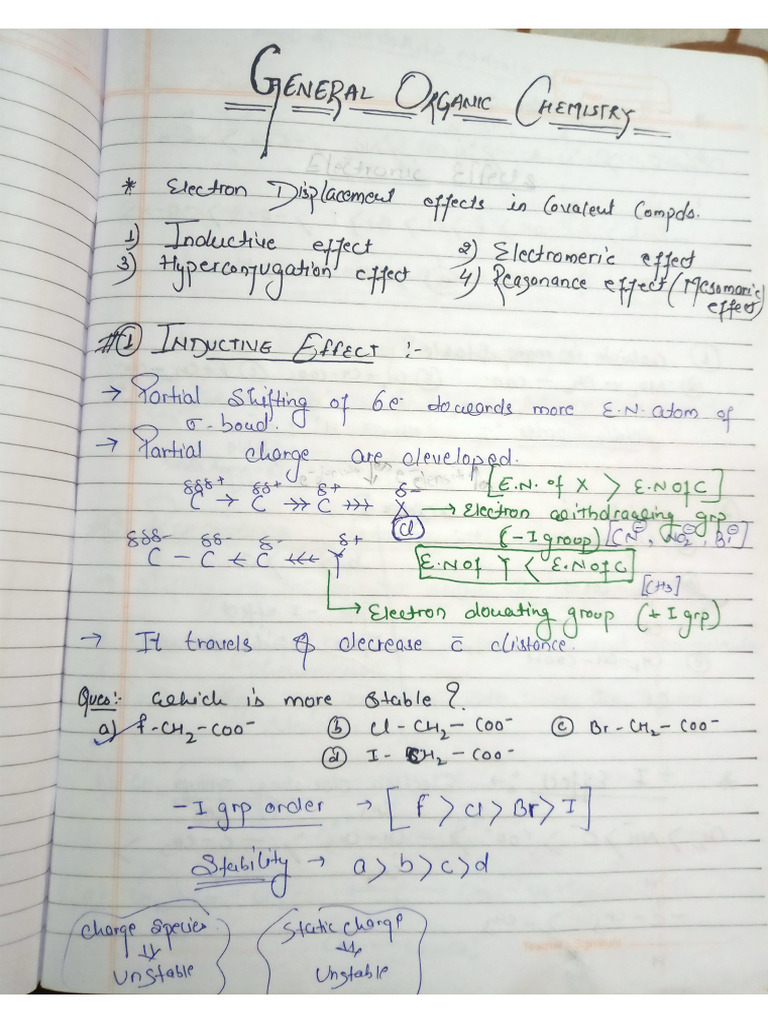 GENERAL ORGANIC CHEMISTRY
* Electron Displacement effects in Covalent Compds.
1) Inductive effect 2) Electromeric effect
3) Hyperconjugation effect 4) Reasonance effect (Mesomeric effect)
#① INDUCTIVE EFFECT :-
→ Partial Shifting of 6e⁻ dowards more E.N. atom of
σ-bond.
→ Partial charge are developed.
δδδ+ δδ+ δ+ δ- [E.N. of X > E.N of C]
C → C →→ C →→→ X → Electron withdrawing grp
Cl (-I group) [CN⊖, NO₂⊖, Br⊖]
δδδ- δδ- δ- δ+
C - C ← C ←←← Y [E.N of Y < E.N of C]
[CH3]
→ Electron donating group (+ I grp)
→ It travels & decrease c̄ distance.
Ques:- Which is more Stable?
a) f-CH₂-COO⁻ ⓑ Cl-CH₂-COO⁻ ⓒ Br-CH₂-COO⁻
ⓓ I-CH₂-COO⁻
-I grp order → [f > Cl > Br > I]
Stability → a > b > c > d
Charge Species Static charge
⇓ ⇓
Unstable Unstable